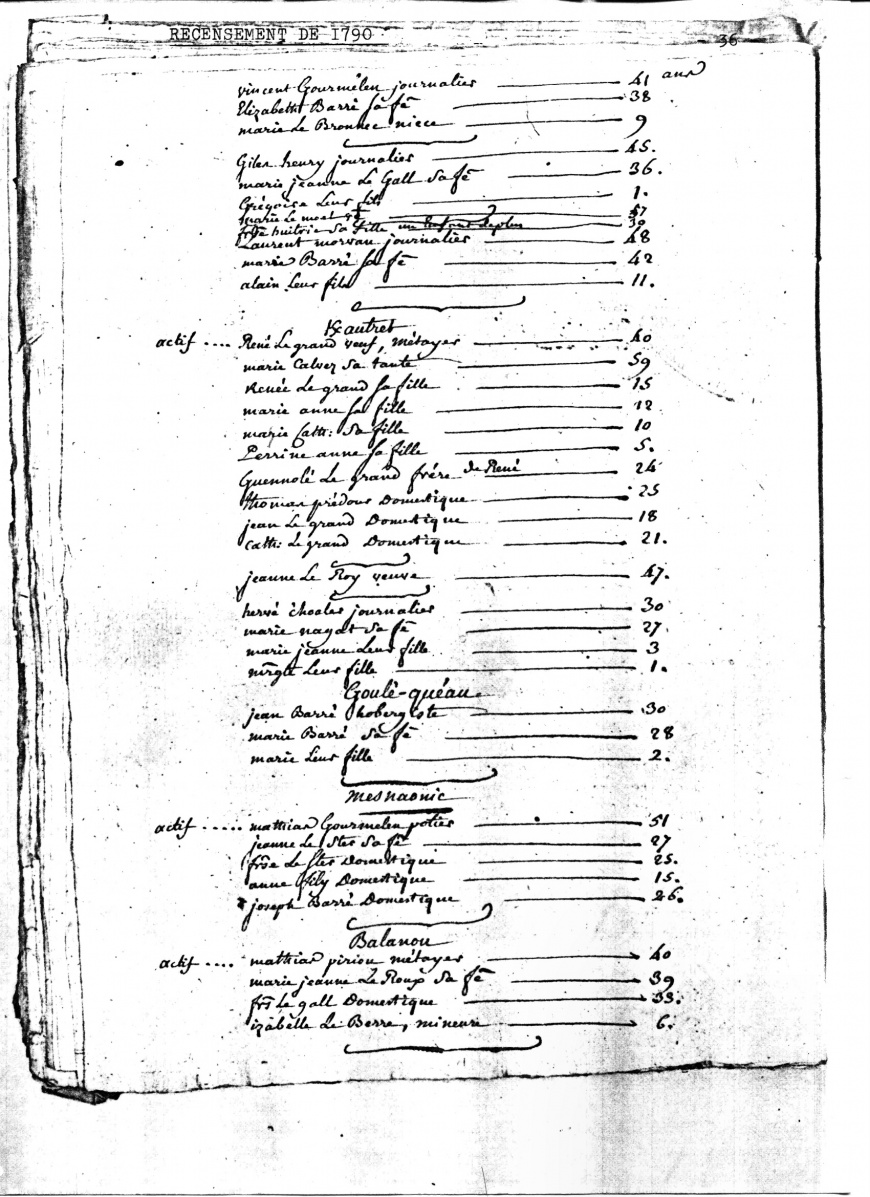 RECENSEMENT DE 1790
36
vincent Gourmelen journalier 41 ans
Elizabeth Barré sa fē 38
marie Le Bronnec niece 9
Giles henry journalier 45.
marie jeanne Le Gall sa fē 36.
Grégoire Leur fils 1.
marie Le moel 57
huitric sa fille un Enfant deplus 30
Laurent morvan journalier 48
marie Barré sa fē 42
alain Leur fils 11.
Kautret
actif .... René Le grand veuf, métayer 40
marie Calvez sa tante 59
Renée Le grand sa fille 15
marie anne sa fille 12
marie Cath: sa fille 10
Perrine anne sa fille 5.
Guennolé Le grand frére de René 24
thomas prédour Domestique 25
jean Le grand Domestique 18
Cath: Le grand Domestique 21.
jeanne Le Roy veuve 47.
hervé journalier 30
marie nagat sa fē 27
marie jeanne Leur fille 3
mrgte Leur fille 1.
Goulé-quéau
jean Barré hobergiste 30
marie Barré sa fē 28
marie Leur fille 2.
mesnaonic
actif ..... mathias Gourmelen potier 51
jeanne Le Ster sa fē 27
frse Le Ster Domestique 25.
anne fily Domestique 15.
joseph Barré Domestique 26.
Balanou
actif .... mathias piriou métayer 40
marie jeanne Le Roux sa fē 39
frs Le gall Domestique 33.
izabelle Le Berre, mineure 6.